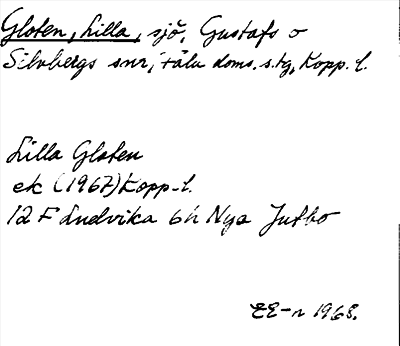 Gloten, Lilla, sjö, Gustafs o
Silvbergs snr, Fälu doms. s. tg, Kopp. l.
Lilla Gloten
ek (1967) Kopp-l.
12 F Ludvika 6h Nya Jutbo
EE-n 1968.